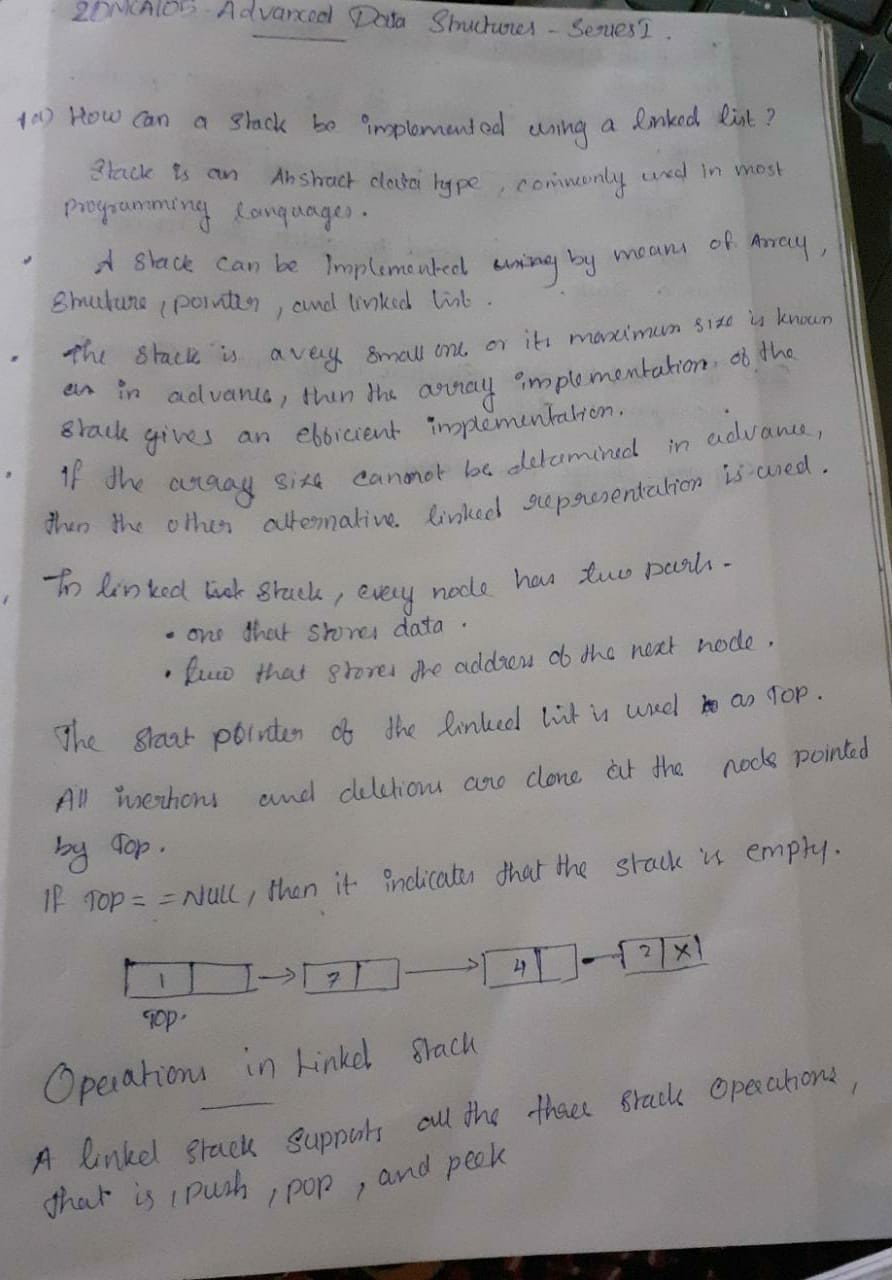 20MCA105 - Advanced Data Structures - Series I.
1a) How can a stack be implemented using a linked list?
Stack is an Abstract data type, commonly used in most
programming languages.
• A stack can be Implemented by means of Array,
Structure, pointer, and linked list.
• The stack is a very small one or its maximum size is known
in advance, then the array implementation of the
stack gives an efficient implementation.
• If the array size cannot be determined in advance,
then the other alternative linked representation is used.
In linked stack, every node has two parts -
• one that stores data.
• two that stores the address of the next node.
The start pointer of the linked list is used as TOP.
All insertions and deletions are done at the node pointed
by Top.
If TOP == NULL, then it indicates that the stack is empty.
1 → 7 → 4 - 2 X
TOP.
Operations in Linked Stack
A linked stack supports all the three stack operations,
that is, push, pop, and peek